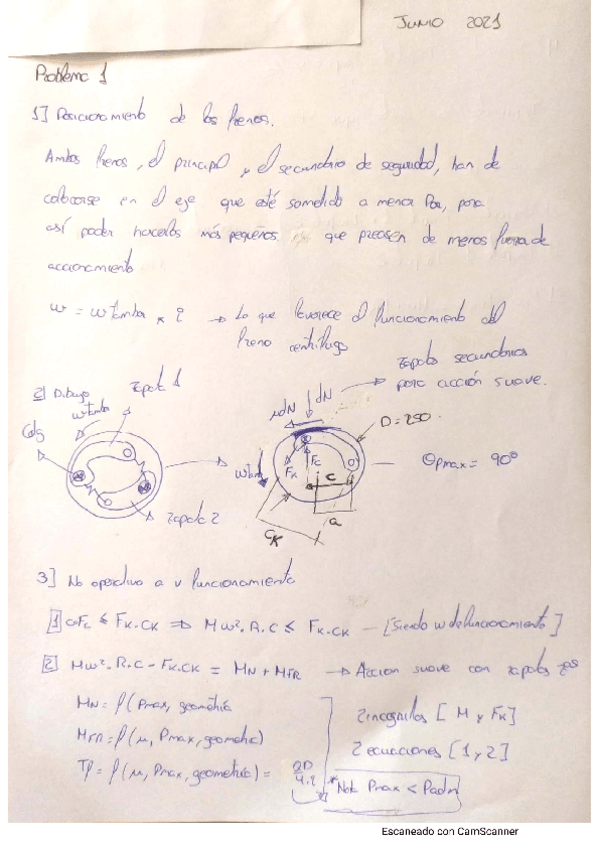 JUNIO 2021
Problema 1
1] Posicionamiento de los frenos.
Ambos frenos, el principal y el secundario de seguridad, han de
colocarse en el eje que esté sometido a menor Par, para
así poder hacerlos más pequeños que precisen de menos fuerza de
accionamiento
w = wtambor * i → Lo que favorece el funcionamiento del
freno centrífugo
2] Dibujo
Zapata 1
wtamb
Cdg
Zapata 2
zapatas secundarias
para acción suave.
μdN dN
D=250.
wtamb
FK Fc
c
a
CK
Θpmax = 90º
3] No operativo a v funcionamiento
1] c·Fc ≤ FK·CK ⇒ Mw²·R·C ≤ FK·CK - [Siendo w de funcionamiento]
2] Mw²·R·C - FK·CK = MN + MFR → Accion suave con zapatas
MN = f(Pmax, geometría
MFR = f(μ, Pmax, geometria)
Tf = f(μ, Pmax, geometría) =
2 incognitas [M y FK]
2 ecuaciones [1 y 2]
*Nota Pmax < Padm
Escaneado con CamScanner